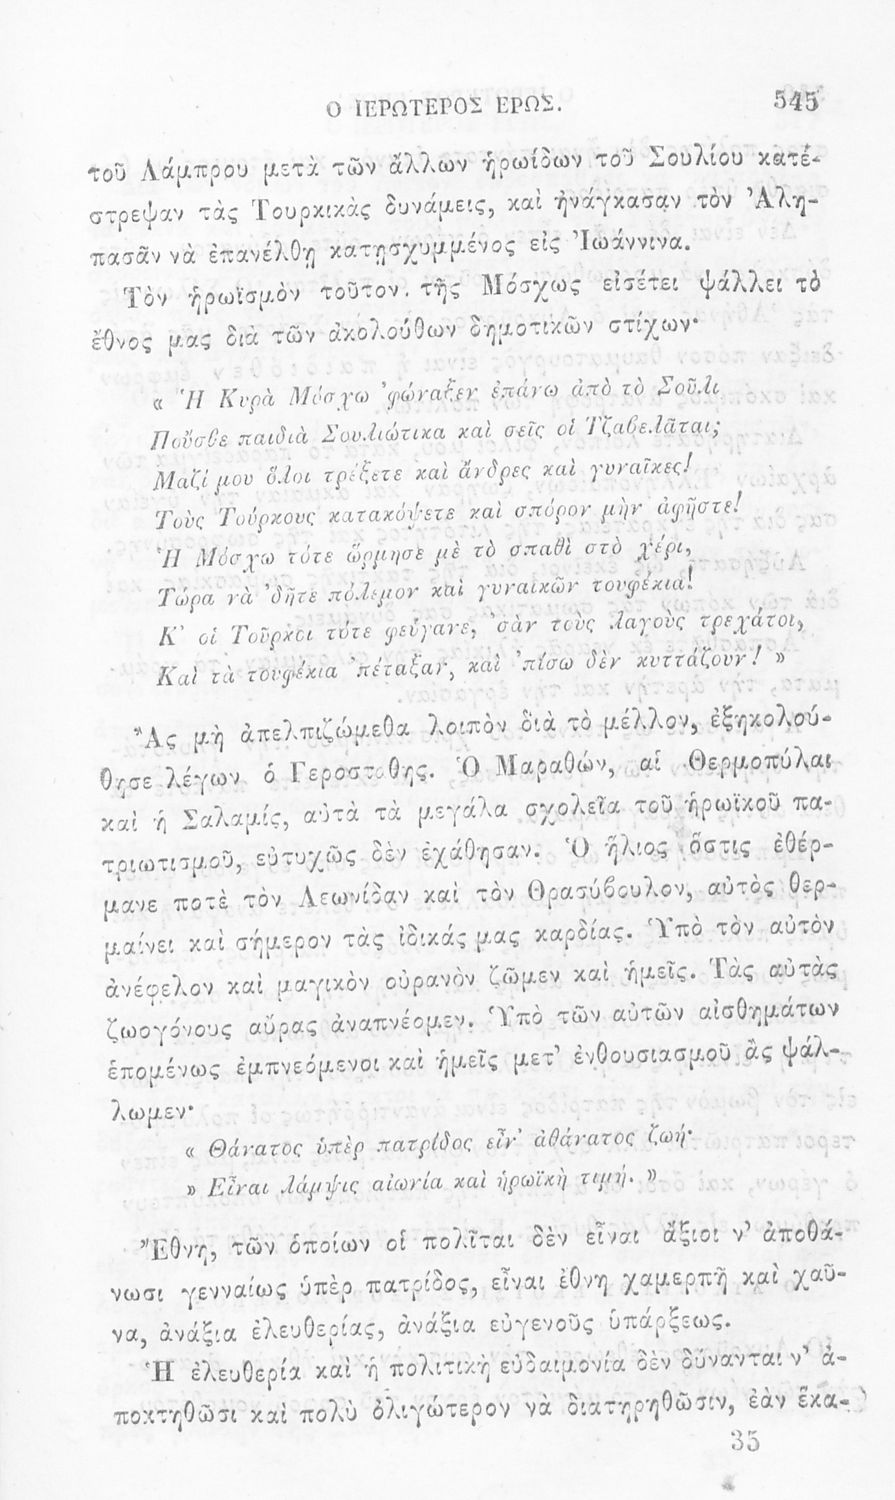 Ο ΙΕΡΩΤΕΡΟΣ ΕΡΩΣ. 545
τοῦ Λάμπρου μετὰ τῶν ἄλλων ἡρωίδων τοῦ Σουλίου κατέ-
στρεψαν τὰς Τουρκικὰς δυνάμεις, καὶ ἠνάγκασαν τὸν Ἀλη-
πασᾶν νὰ ἐπανέλθῃ κατῃσχυμμένος εἰς Ἰωάννινα.
Τὸν ἡρωϊσμὸν τοῦτον τῆς Μόσχως εἰσέτει ψάλλει τὸ
ἔθνος μας διὰ τῶν ἀκολούθων δημοτικῶν στίχων·
« Ἡ Κυρὰ Μόσχω 'φώναξεν ἐπάνω ἀπὸ τὸ Σοῦλι
Ποῦσθε παιδιὰ Σουλιώτικα καὶ σεῖς οἱ Τζαβελᾶται;
Μαζί μου ὅλοι τρέξετε καὶ ἄνδρες καὶ γυναῖκες!
Τοὺς Τούρκους κατακόψετε καὶ σπόρον μὴν ἀφῆστε!
Ἡ Μόσχω τότε ὥρμησε μὲ τὸ σπαθὶ στὸ χέρι,
Τώρα νὰ 'δῆτε πόλεμον καὶ γυναικῶν τουφέκια!
Κ' οἱ Τοῦρκοι τότε φεύγανε, 'σὰν τοὺς λαγοὺς τρεχάτοι,
Καὶ τὰ τουφέκια 'πέταξαν, καὶ 'πίσω δὲν κυττάζουν! »
Ἂς μὴ ἀπελπιζώμεθα λοιπὸν διὰ τὸ μέλλον, ἐξηκολού-
θησε λέγων ὁ Γεροστάθης. Ὁ Μαραθών, αἱ Θερμοπύλαι
καὶ ἡ Σαλαμίς, αὐτὰ τὰ μεγάλα σχολεῖα τοῦ ἡρωϊκοῦ πα-
τριωτισμοῦ, εὐτυχῶς δὲν ἐχάθησαν. Ὁ ἥλιος ὅστις ἐθέρ-
μανε ποτὲ τὸν Λεωνίδαν καὶ τὸν Θρασύβουλον, αὐτὸς θερ-
μαίνει καὶ σήμερον τὰς ἰδικάς μας καρδίας. Ὑπὸ τὸν αὐτὸν
ἀνέφελον καὶ μαγικὸν οὐρανὸν ζῶμεν καὶ ἡμεῖς. Τὰς αὐτὰς
ζωογόνους αὔρας ἀναπνέομεν. Ὑπὸ τῶν αὐτῶν αἰσθημάτων
ἑπομένως ἐμπνεόμενοι καὶ ἡμεῖς μετ' ἐνθουσιασμοῦ ἂς ψάλ-
λωμεν·
« Θάνατος ὑπὲρ πατρίδος εἶν' ἀθάνατος ζωή·
» Εἶναι λάμψις αἰωνία καὶ ἡρωϊκὴ τιμή. »
Ἔθνη, τῶν ὁποίων οἱ πολῖται δὲν εἶναι ἄξιοι ν' ἀποθά-
νωσι γενναίως ὑπὲρ πατρίδος, εἶναι ἔθνη χαμερπῆ καὶ χαῦ-
να, ἀνάξια ἐλευθερίας, ἀνάξια εὐγενοῦς ὑπάρξεως.
Ἡ ἐλευθερία καὶ ἡ πολιτικὴ εὐδαιμονία δὲν δύνανται ν' ἀ-
ποκτηθῶσι καὶ πολὺ ὀλιγώτερον νὰ διατηρηθῶσιν, ἐὰν ἕκα-
35